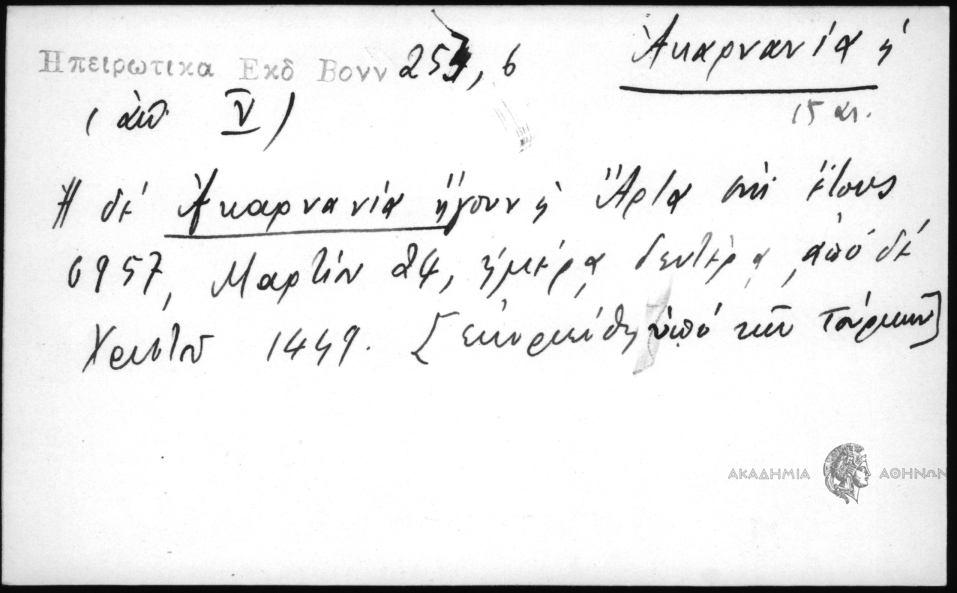 Ηπειρωτικα Εκδ Βονν 257, 6
Ἀκαρνανία ἡ
15 αι.
(ἀπ. V)
Ἡ δὲ Ἀκαρνανία ἤγουν ἡ Ἄρτα ἐπὶ ἔτους
6957, Μαρτίου 24, ἡμέρᾳ δευτέρᾳ, ἀπό δὲ
Χριστοῦ 1449. [ὑπό τῶν Τούρκων]
ΑΚΑΔΗΜΙΑ ΑΘΗΝΩΝ